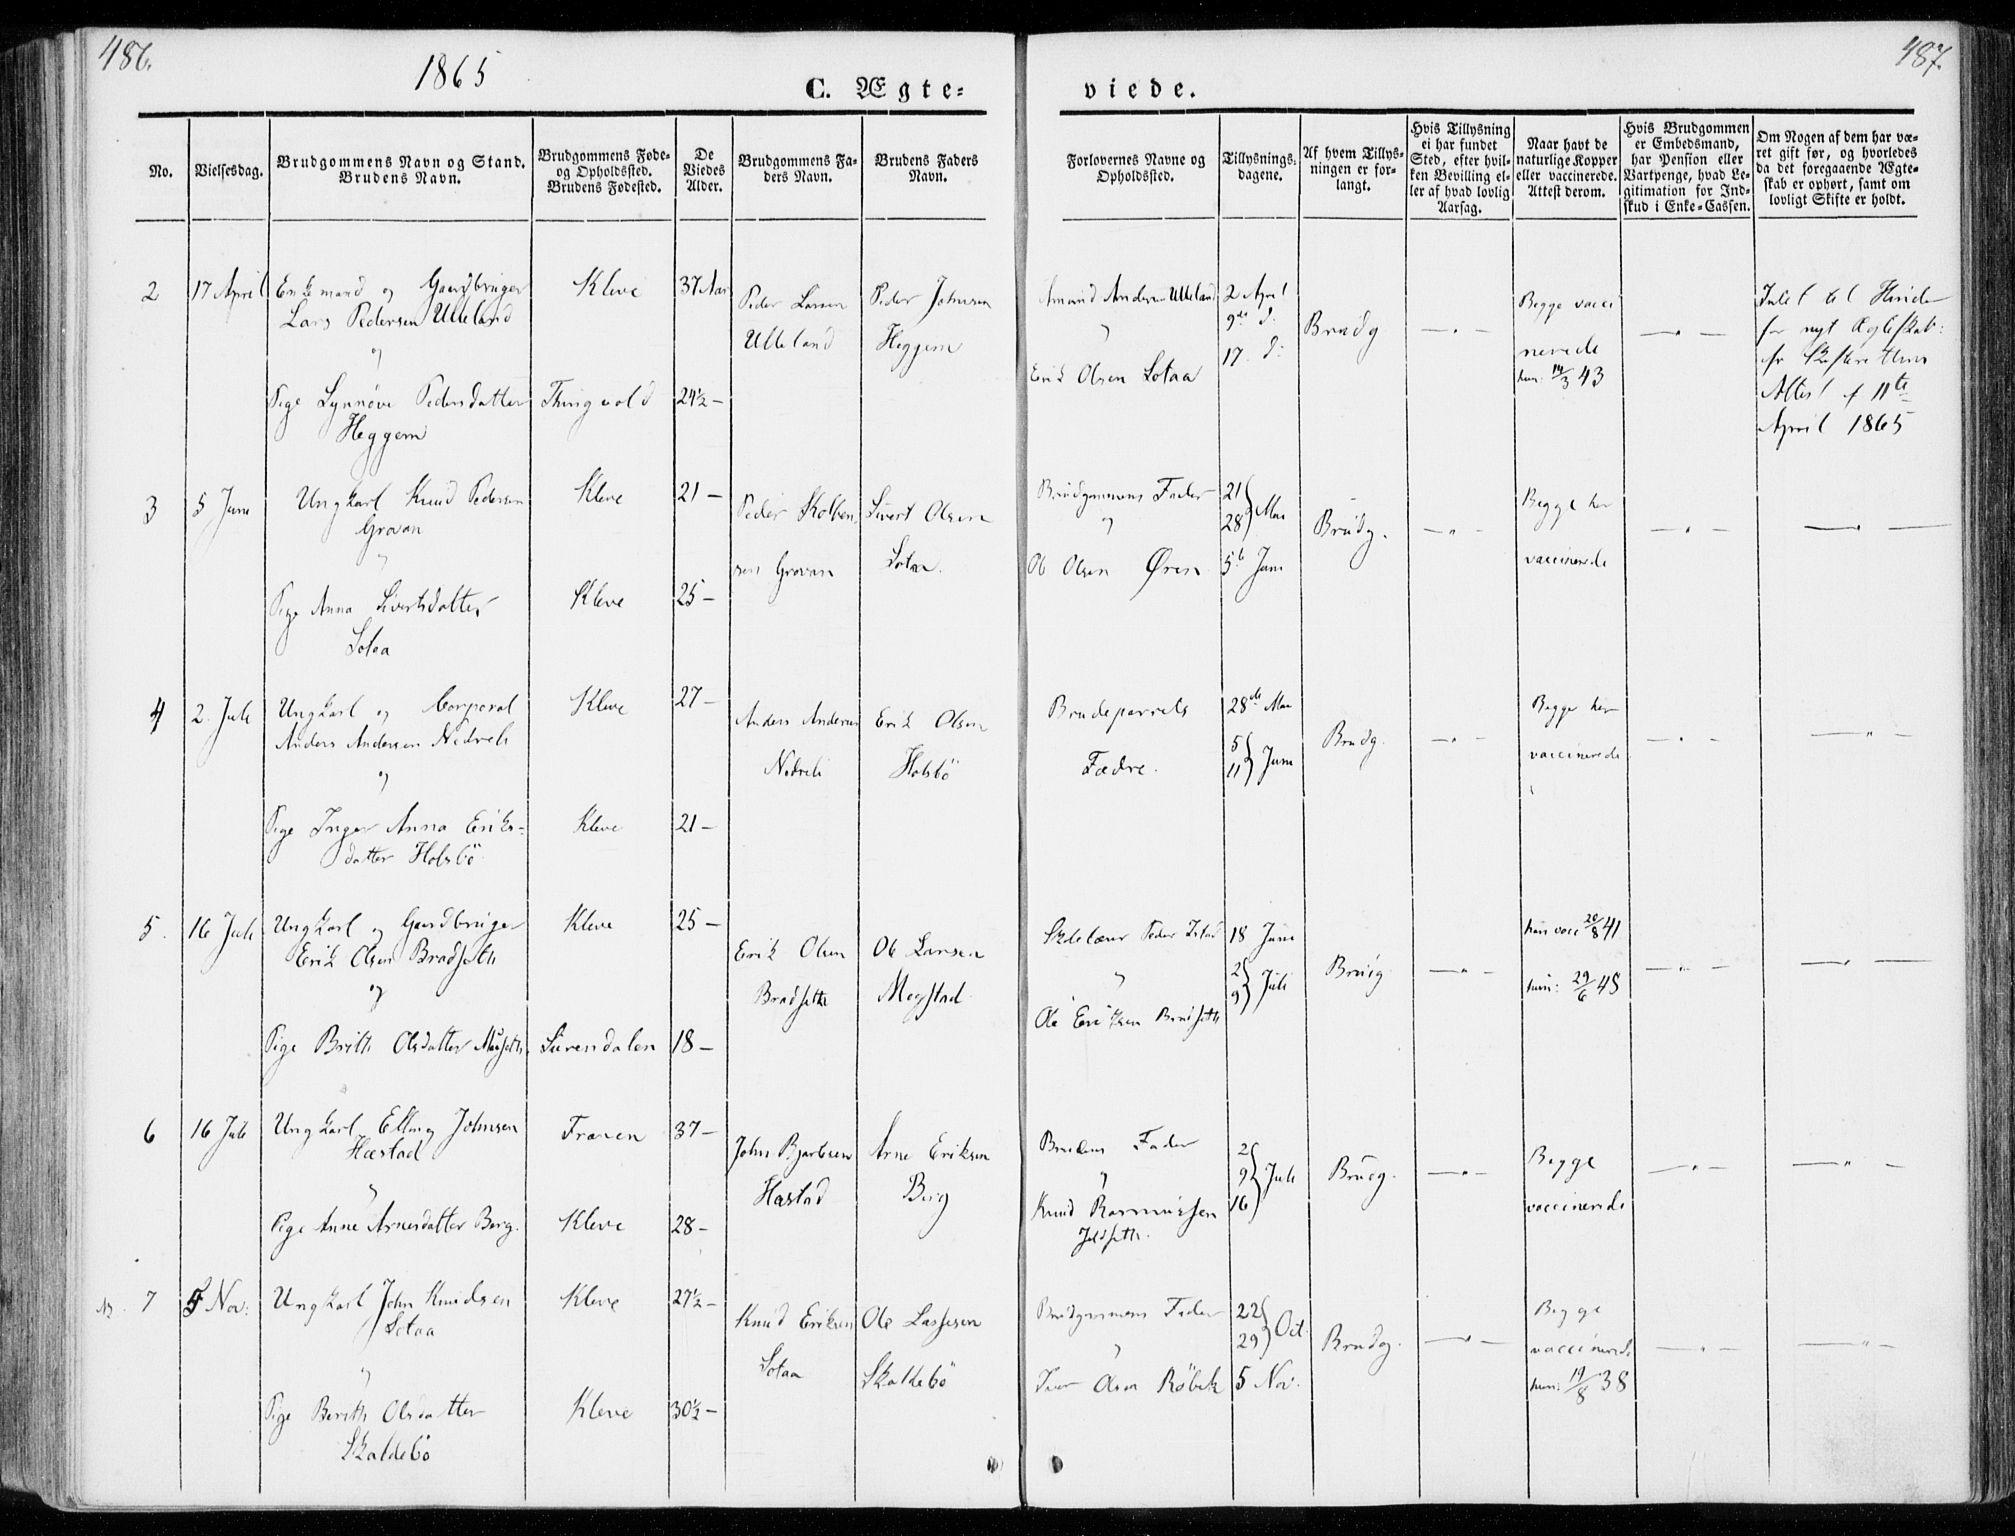 486.
1865
487.
C. Ægte-
viede.
No.
Vielsesdag.
Brudgommens Navn og Stand.
Brudens Navn.
Brudgommens Føde-
og Opholdssted.
Brudens Fødested.
De
Viedes
Alder.
Brudgommens Fa-
ders Navn.
Brudens Faders
Navn.
Forlovernes Navne og
Opholdssted.
Tillysnings-
dagene.
Af hvem Tillys-
ningen er for-
langt.
Hvis Tillysning
ei har fundet
Sted, efter hvil-
ken Bevilling el-
ler af hvad lovlig
Aarsag.
Naar havt de
naturlige Kopper
eller vaccinerede.
Attest derom.
Hvis Brudgommen
er Embedsmand,
har Pension eller
Vartpenge, hvad Le-
gitimation for Ind-
skud i Enke-Cassen.
Om Nogen af dem har væ-
ret gift før, og hvorledes
da det foregaaende Ægte-
skab er ophørt, samt om
lovligt Skifte er holdt.
2
17 April
Enkemand og Gaardbruger
Lars Pedersen Ulleland
og
Pige Synnøve Pedersdatter
Heggem
Kleve
Thingvold
37 Aar
24½ —
Peder Larsen
Ulleland
Peder Johnsen
Heggem
Amund Andersen Ulleland
"
Erik Olsen Sotaa
2 April
9de d:
17. d:
Brudg
— " —
Begge vacci
nerede
hun: 14/3 43
— " —
Intet til Hinder
for nyt Ægteskab:
Attest af 11te
April 1865
3
5 Juni
Ungkarl Knud Pedersen
Grovan
"
Pige Anna Sivertsdatter
Sotaa
Kleve
Kleve
21 —
25 —
Peder Kolben
sen Grovan
Sivert Olsen
Sotaa.
Brudgommens Fader
og
Ole Olsen Øren
21
28 } Mai
5te Juni
Brudg.
— " —
Begge her
vaccinerede
— " —
— " —
4
2. Juli
Ungkarl og Corporal
Anders Andersen Nedreli
og
Pige Inger Anna Eriks-
datter Holsbö
Kleve
Kleve
27 —
21 —
Anders Andersen
Nedreli
Erik Olsen
Holsbö
Brudeparrets
Fædre.
28de Mai
5
11 } Juni
Brudg.
— " —
Begge her
vaccinerede
— " —
— " —
5.
16 Juli
Ungkarl og Gaardbruger
Erik Olsen Bradseth
og
Pige Brith Olsdatter
Kleve
Surendalen
25 —
18 —
Erik Olsen
Bradseth
Ole Larsen
Mogstad
Skolelærer Peder Istad
"
Ole Eriksen Bradseth
18 Juni
2
9 } Juli
Brudg.
— " —
han vacc 20/8 41
hun: 29/6 48
— " —
— " —
6
16 Juli
Ungkarl Elling Johnsen
Hæstad
"
Pige Anne Arnesdatter Berg.
Frænen
Kleve
37 —
28 —
John
Hæstad
Arne Eriksen
Berg
Brudens Fader
"
Knud Rasmussen
2
9 } Juli
16
Brudg.
— " —
Begge
vaccinerede
— " —
— " —
7
5 Nov:
Ungkarl John Knudsen
Sotaa
"
Pige Berith Olsdatter
Skaldebö
Kleve
Kleve
27½ —
30½ —
Knud Eriksen
Sotaa
Ole Lassesen
Skaldebö
Brudgommens Fader
"
Iver Olsen Röbek
22
29 } Oct.
5 Nov.
Brudg.
— " —
Begge
vaccinerede
hun: 19/8 38
— " —
— " —